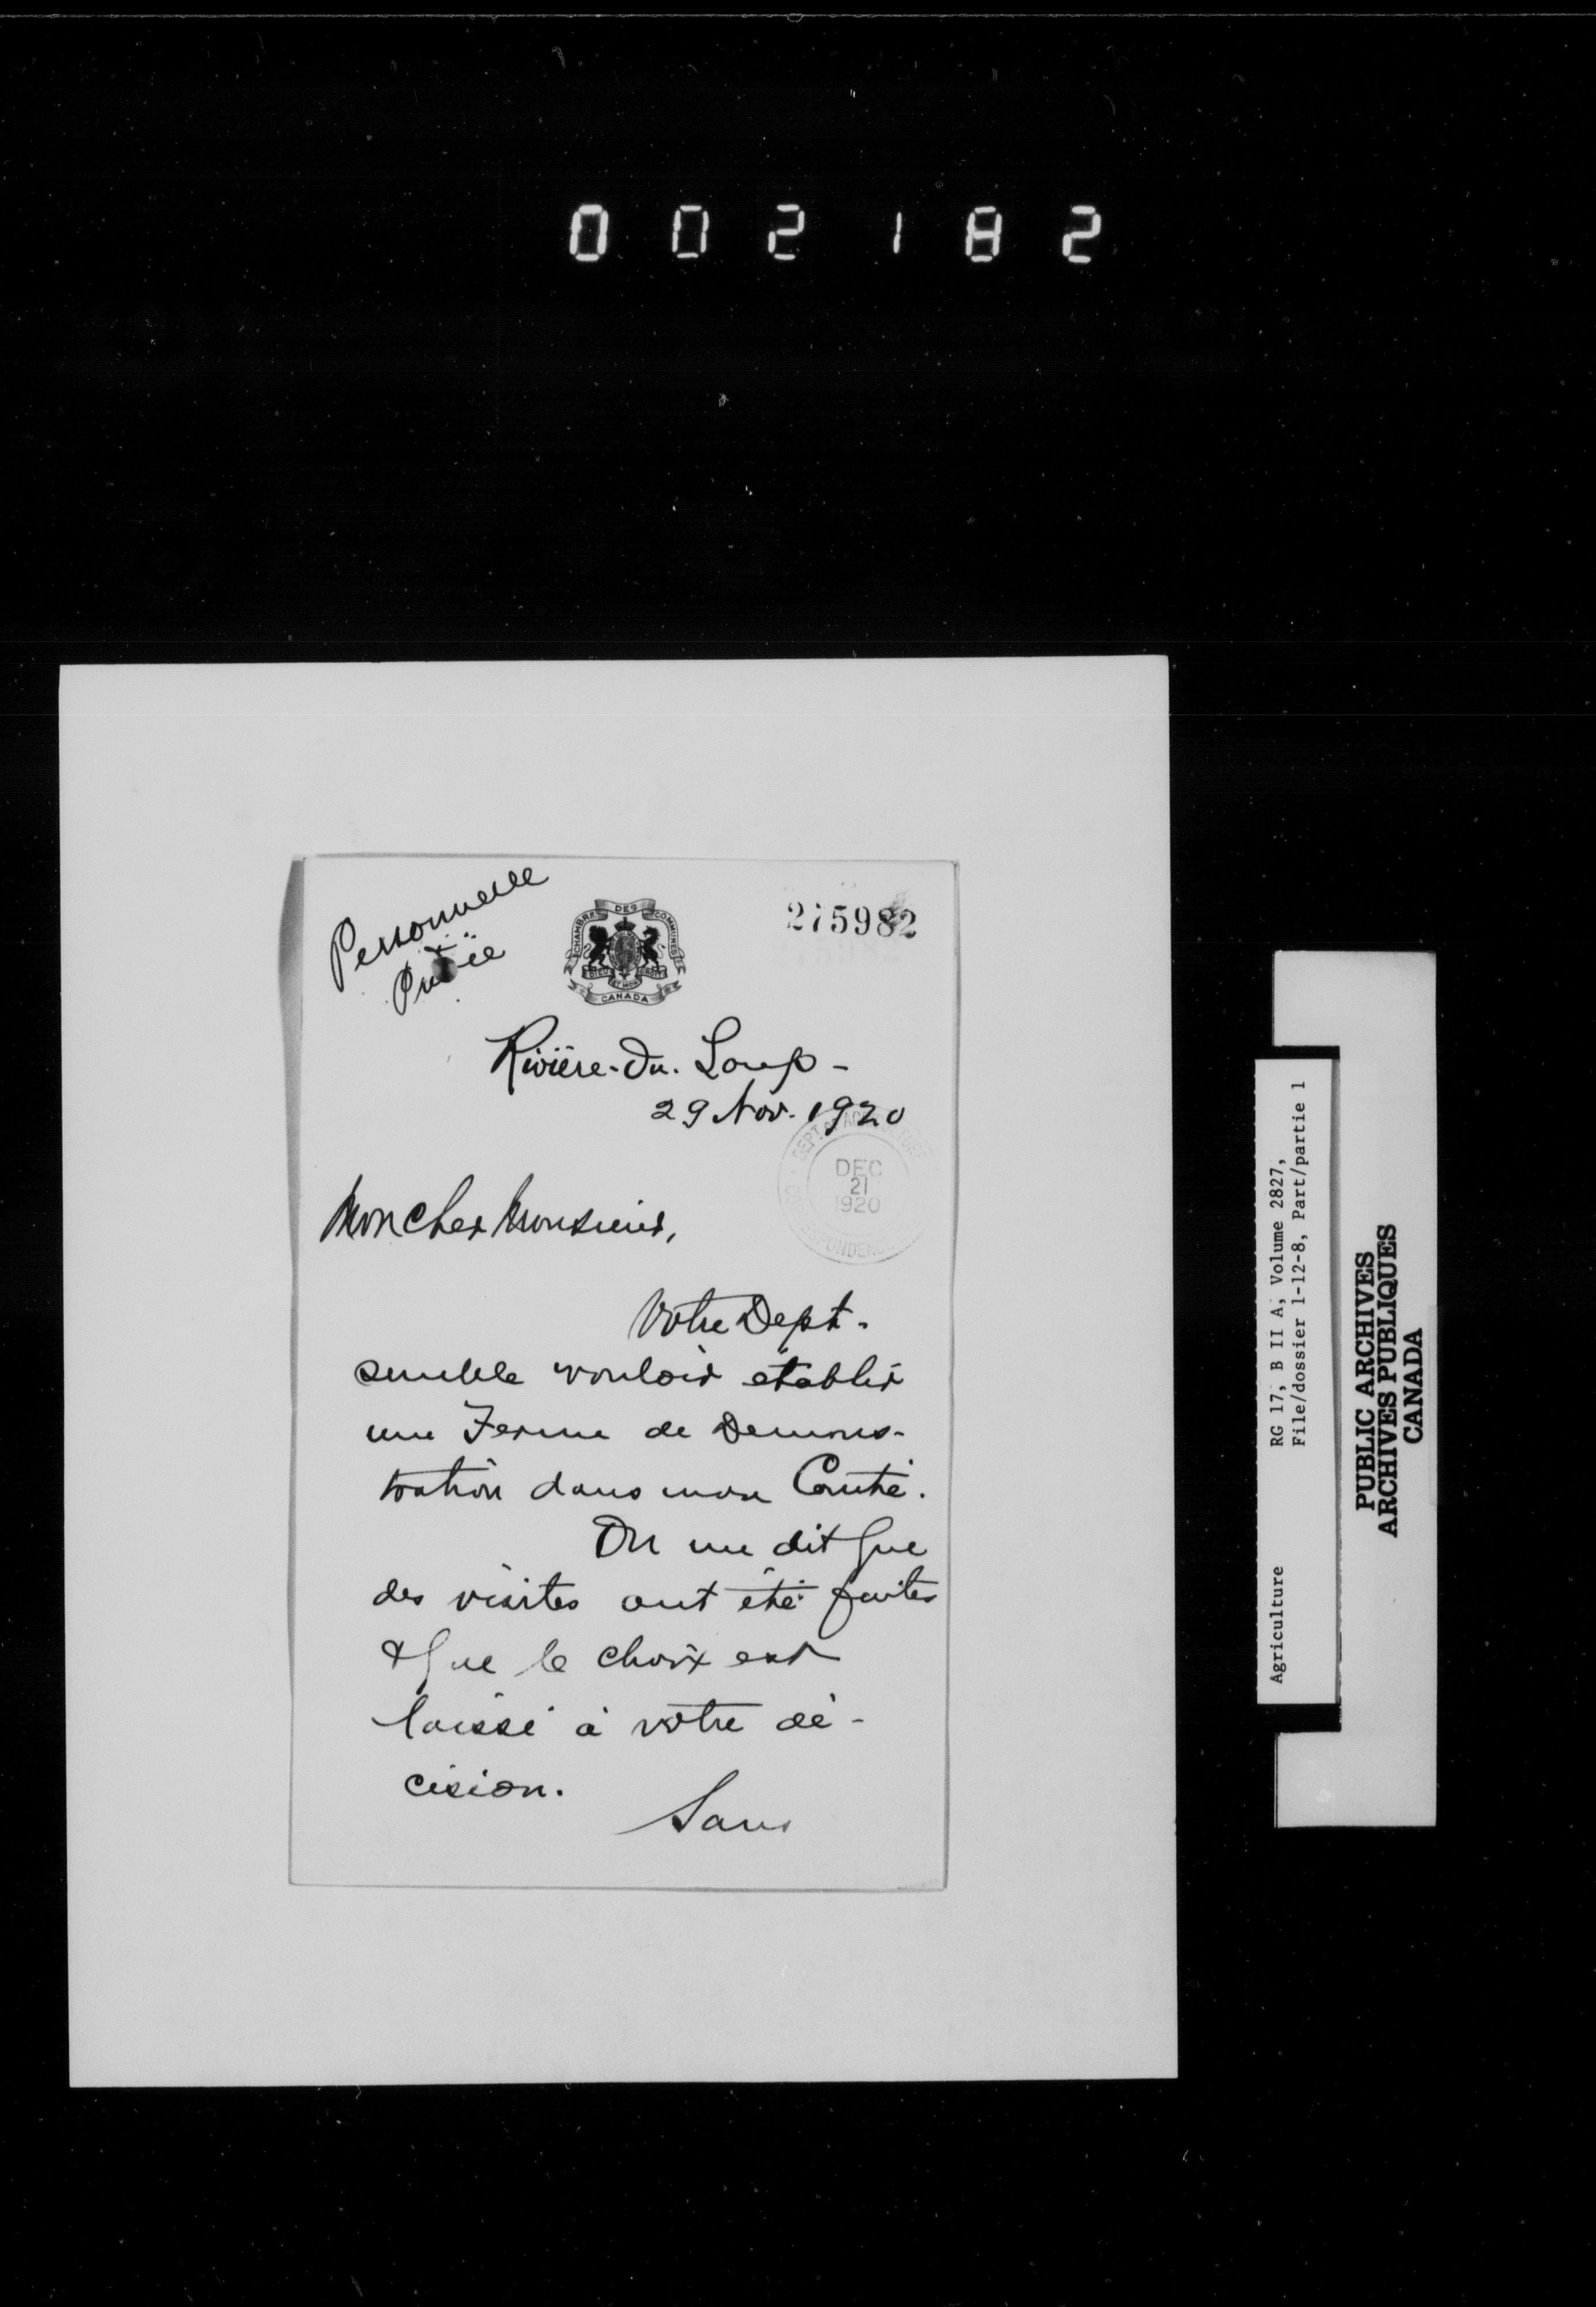 002182
Personnelle
&
Privée
CHAMBRE DES COMMUNES
DIEU ET MON DROIT
CANADA
275982
Rivière-du-Loup-
29 Nov. 1920
DEPT. OF AGRICULTURE
DEC
21
1920
CORRESPONDENCE
Mon cher Monsieur,
Votre Dept.
semble vouloir établir
une Ferme de Démons-
tration dans mon Comté.
On me dit que
des visites ont été faites
& que le choix est
laissé à votre dé-
cision.
Sans
Agriculture RG 17, B II A, Volume 2827,
File/dossier 1-12-8, Part/partie 1
PUBLIC ARCHIVES
ARCHIVES PUBLIQUES
CANADA